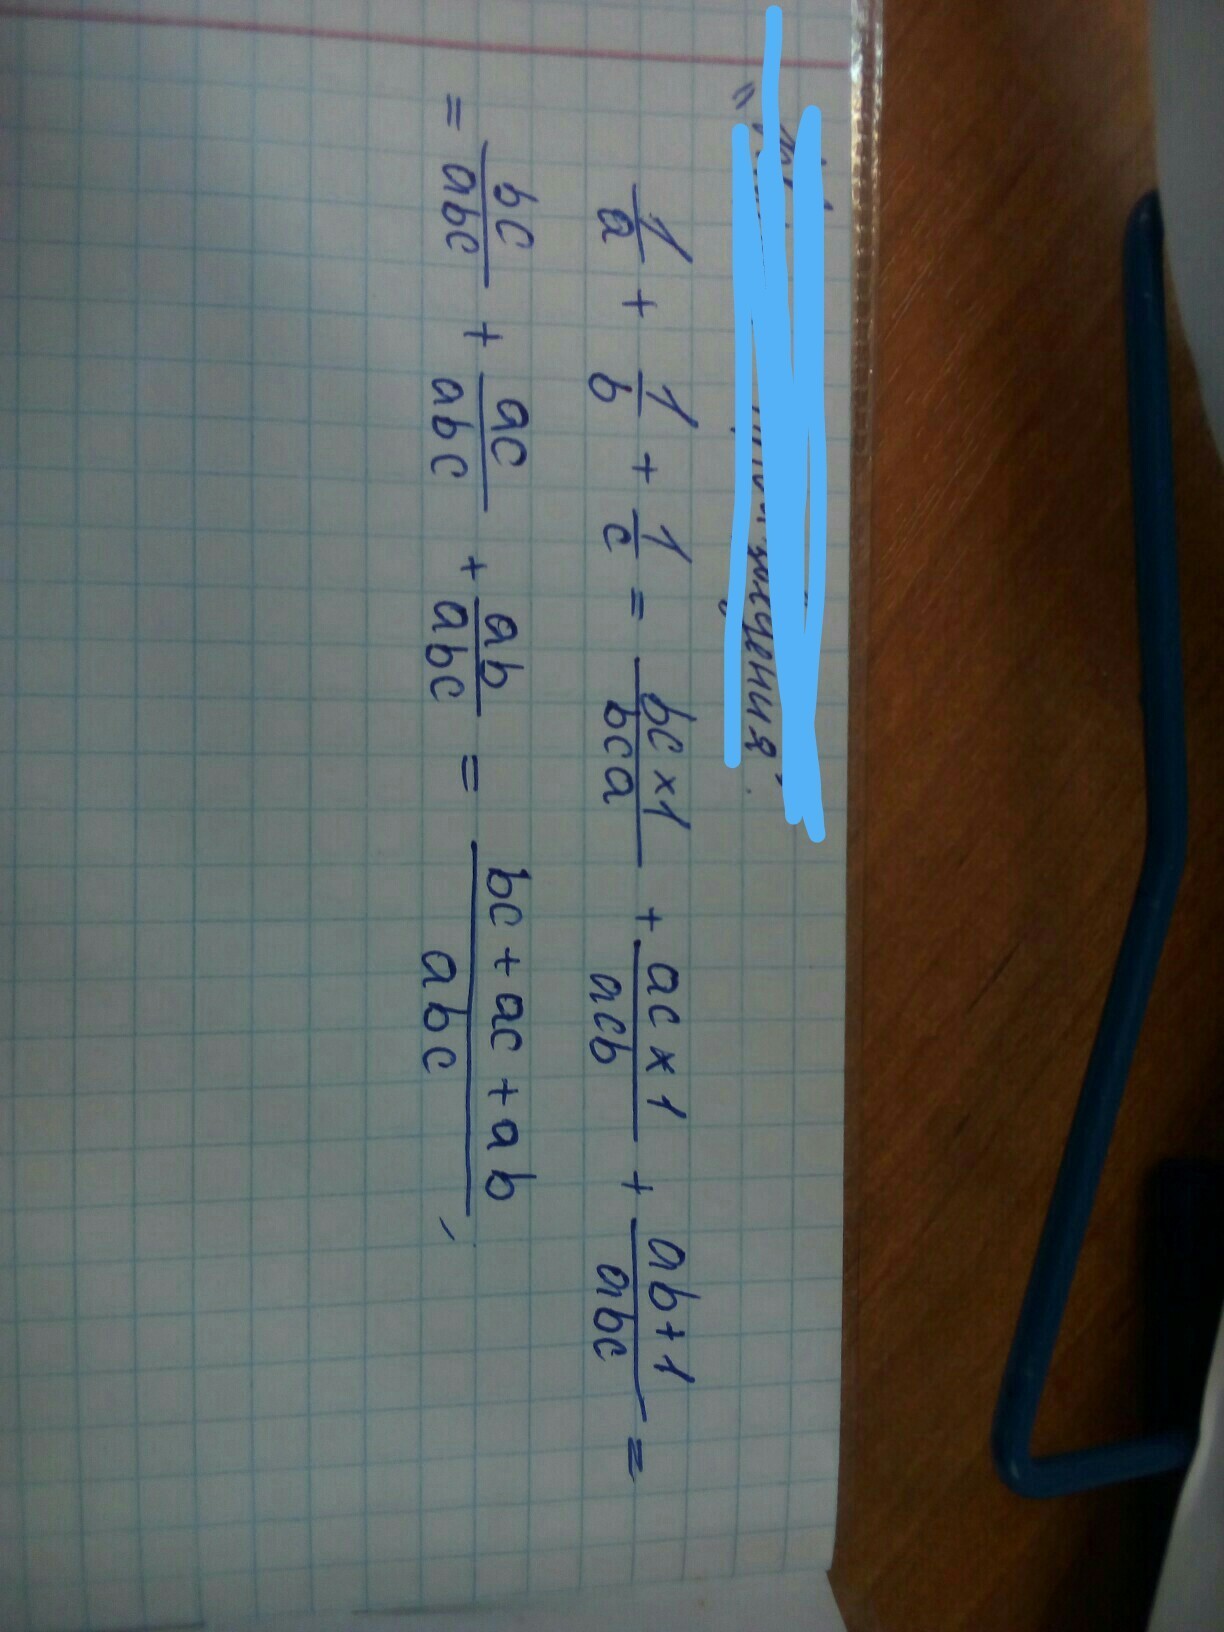 1/a + 1/b + 1/c = bc×1/bca + ac×1/acb + ab+1/abc =
= bc/abc + ac/abc + ab/abc = bc + ac + ab/abc